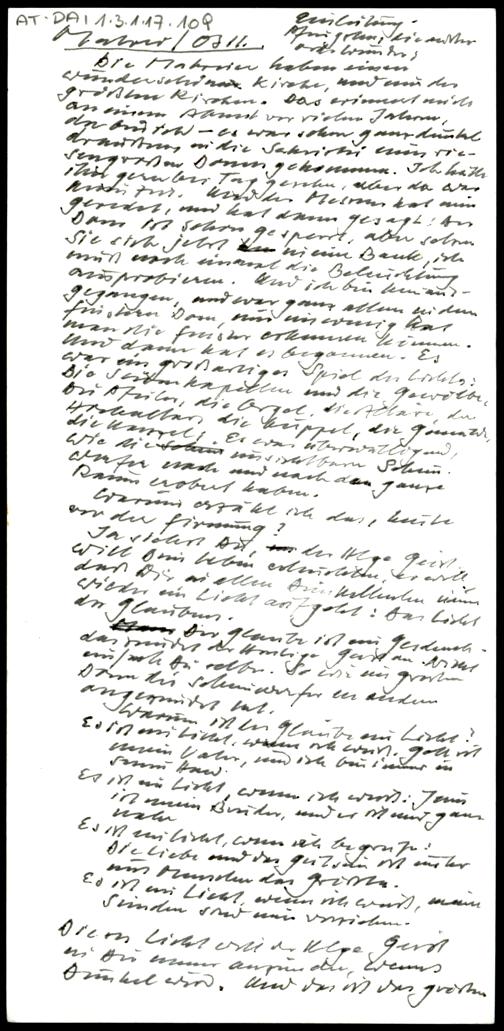 AT-DA 1.3.1.17.109
Einleitung.
Matrei / OT II.
Die Matreier haben einen
wunderschönen Kirche, und eine der
größten Kirchen. Das erinnert mich
an einen Abend vor vielen Jahren,
da bin ich – es war schon ganz dunkel
draußen in die Sakristei eines rie-
sengroßen Domes gekommen. Ich hätte
ihn gerne bei Tag gesehen, aber da war
keine Zeit. Und der Mesner hat mir
geredet, und hat dann gesagt: Der
Dom ist schon gesperrt, aber setzen
Sie sich jetzt in eine Bank, ich
muß noch einmal die Beleuchtung
ausprobieren. Und ich bin hinaus-
gegangen, und war ganz allein in dem
finstern Dom, nur ein wenig hat
man die Fenster erkennen können.
Und dann hat es begonnen. Es
war ein großartiges Spiel des Lichts:
Die Seitenkapellen und die Gewölbe,
die Pfeiler, die Orgel, die Altäre, der
Hochaltar, die Kuppel, die Gemälde,
die Kanzel: Es war überwältigend,
wie die unsichtbaren Schein-
werfer nach und nach den ganzen
Raum erobert haben.
Warum erzähl ich das, heute
vor der Firmung?
Ja siehst Du, der Hlge Geist
will Dein Leben erleuchten, er will,
daß Dir in allen Dunkelheiten immer
wieder ein Licht aufgeht: Das Licht
des Glaubens.
Der Glaube ist ein Geschenk.
das zündet der Heilige Geist an. Nicht
einfach Du selber. So wie im großen
Dom die Scheinwerfer ein anderer
angezündet hat.
Warum ist der Glaube ein Licht?
Es ist ein Licht, wenn ich weiß, Gott ist
mein Vater, und ich bin immer in
seiner Hand.
Es ist ein Licht, wenn ich weiß: Jesus
ist mein Bruder, und er ist mir ganz
nahe
Es ist ein Licht, wenn ich begreife:
Die Liebe und das gut sein ist unter
uns Menschen das größte.
Es ist ein Licht, wenn ich weiß, meine
Sünden sind mir verziehen.
Dieses Licht will der Hlge Geist
in Dir immer anzünden, wenns
dunkel wird. Und das ist das größte